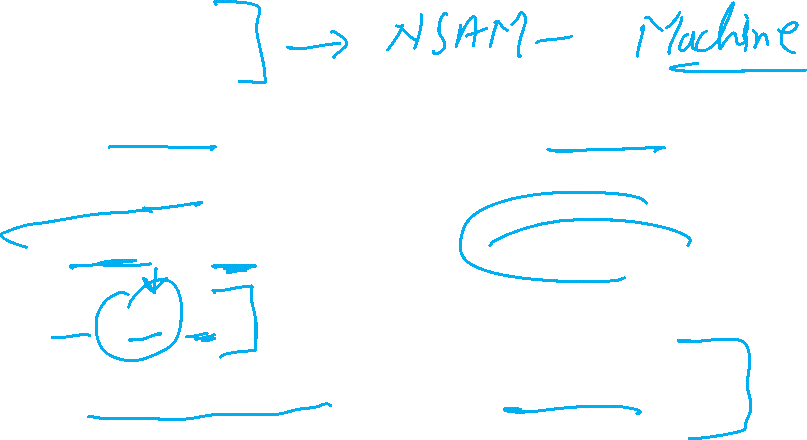 ] → NSAM - Machine